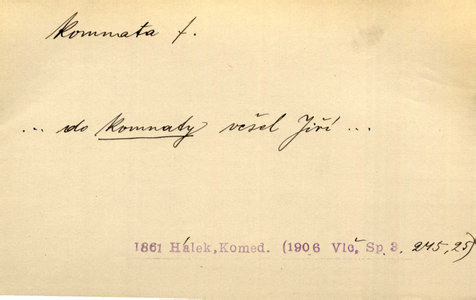 komnata f.
... do komnaty vešel Jiří ...
1861 Hálek, Komed. (1906 Vlč, Sp 3. 245,25)